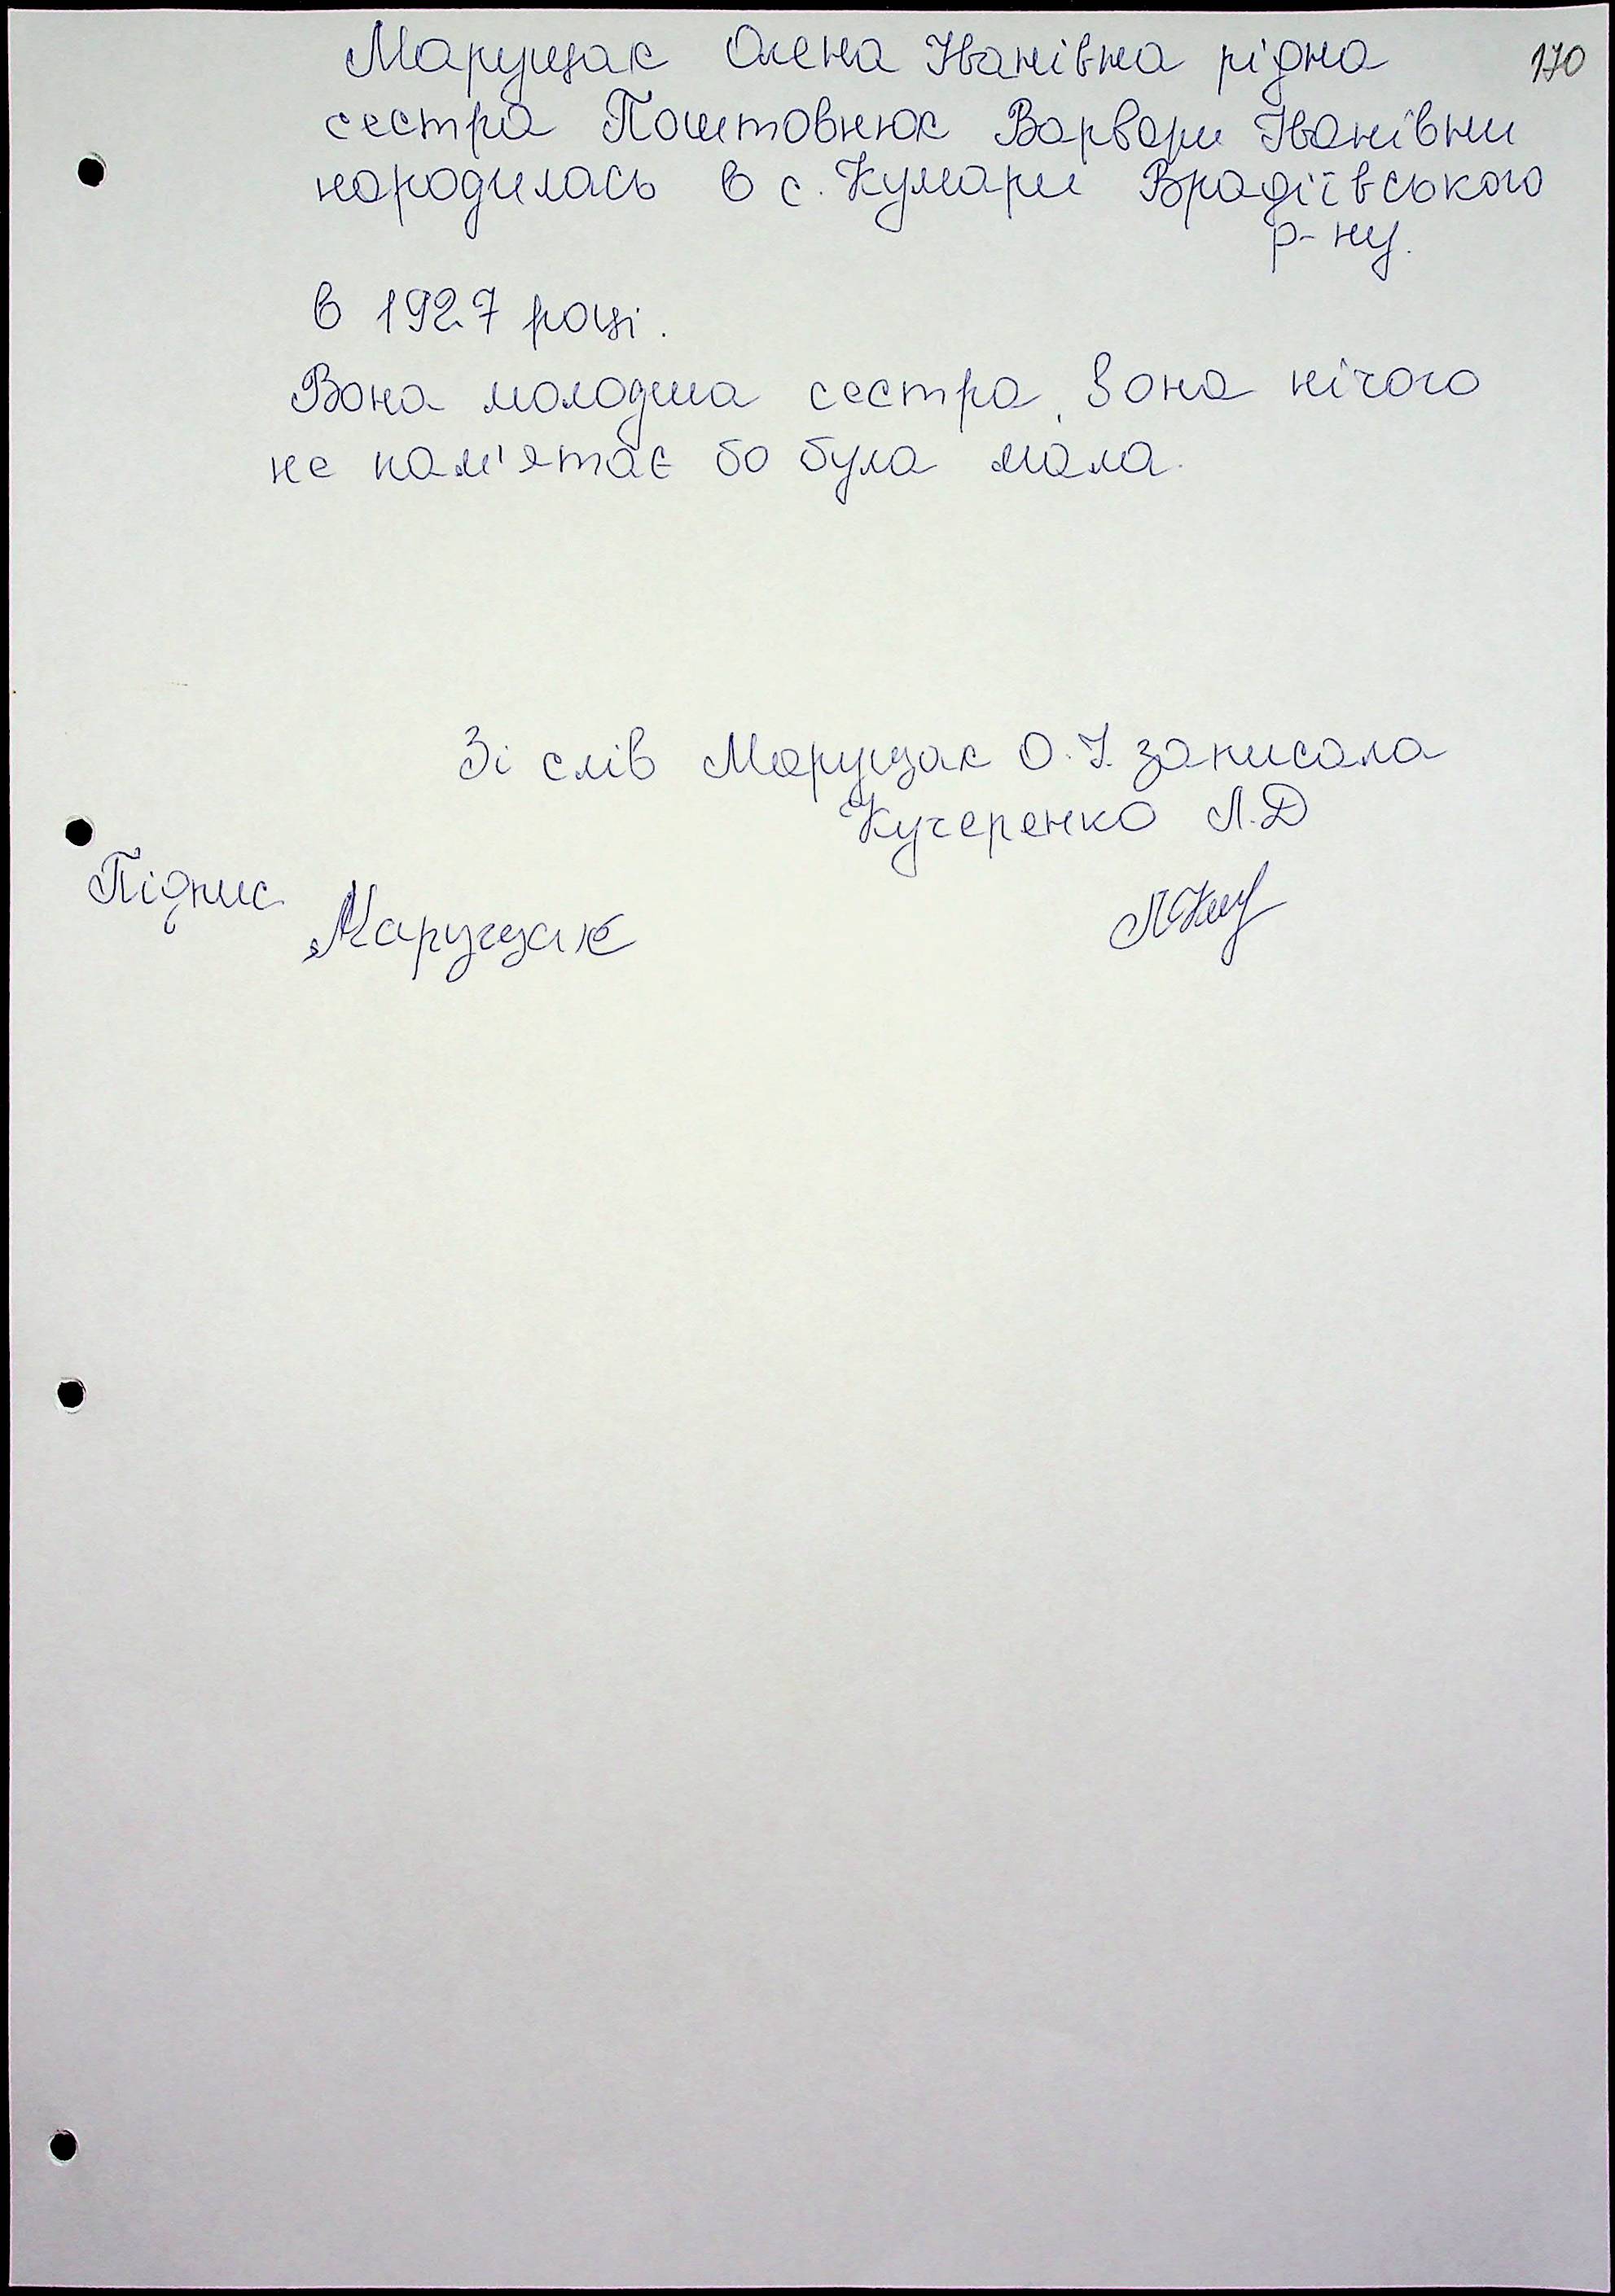 170
Марущак Олена Іванівна рідна
сестра Поштовнюк Варвари Іванівни
народилась в с. Кумари Врадіївського
р-ну.
в 1927 році.
Вона молодша сестра, вона нічого
не пам'ятає бо була мала.
Зі слів Марущак О.І. записала
Кучеренко Л.Д
Підпис
Марущак